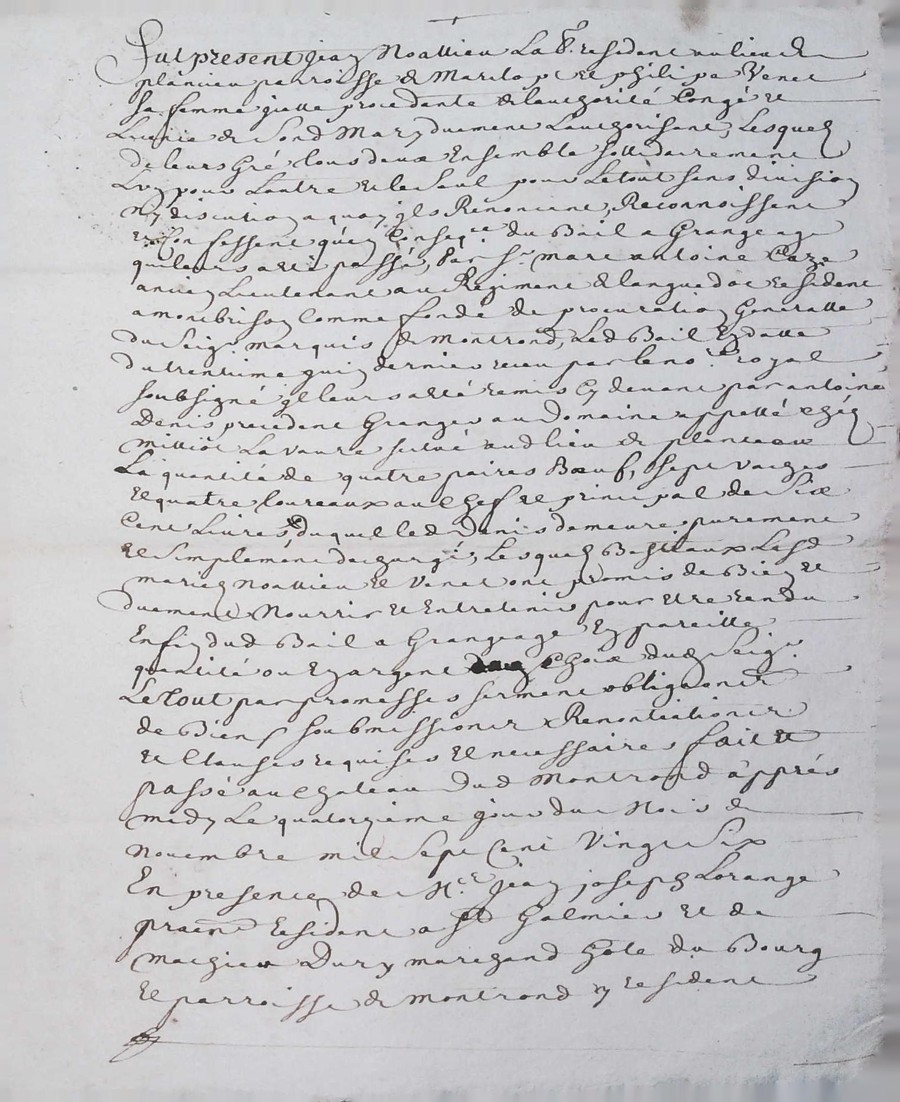 Fut present Jean Noallieu La.r resident au lieu de
plancieu parroisse de Marclop et philipe Venet
sa femme jcelle procedante de lauthorité Congé et
Licence de sond Mary duement Lauthorisant, Lesquelz
de leurs Gré tous deux Ensemble sollidairement
Lvn pour Lautre et le seul pour Le tout sans division
ny discution a quoy jls Renoncent, Reconnoissent
et Confessent qu'en Conseq.ce du Bail a Grangeage
qui leurs a esté passé, par s.r marc antoine Caze
ancien Lieutenant au Regiment de languedoc resident
a montbrison Comme fondé de procuration Generalle
du Seig.r marquis de Montrond, Led Bail En datte
du trentieme juin dernier receu par le no.re royal
soubsigné jl leurs a esté remis Cy devant par antoine
Denis precedent Granger au Domaine appellé chez
milliot La vaure scitué aud lieu de plancieux
La quantité de quatre paires Bœufs, sept vaches
et quatre toureaux au chef et principal de Six
Cent Livres duquel led Denis demeure purement
et simplement dechargé, Lesquelz Bestiaux Lesd
mariez Noallieu et Venet ont promis de Bien et
duement Nourrir et Entretenir pour etre rendu
En fin dud Bail a Grangeage En pareille
quantité ou En argent choix dud Seig.r
Le tout par promesses serment obligaon.er
de Biens soubmission.er Renontiation.er
et Clauses requises et necessaires fait et
passé au chateau dud Montrond apprés
midy Le quatorzieme jour du Mois de
novembre mil Sept Cent Vingt Six
En presence de M.e Jean joseph Lorange
praen resident a St Galmier et de
mathieu Dury marchand hôte du Bourg
et parroisse de montrond y resident